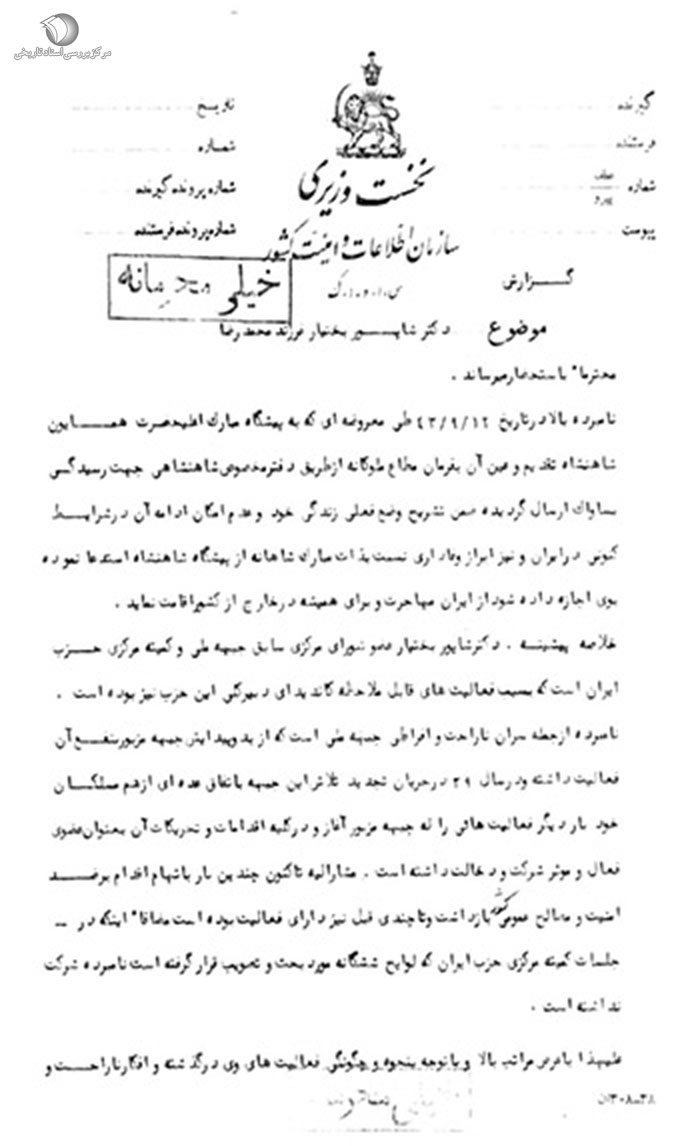 مرکز بررسی اسناد تاریخی
گیرنده
فرستنده
شماره
پیوست
تاریخ
شماره
شماره پرونده گیرنده
شماره پرونده فرستنده
نخست وزیری
سازمان اطلاعات و امنیت کشور
گزارش
خیلی محرمانه
موضوع دکتر شاپور بختیار فرزند محمدرضا
محترما" باستحضار میرساند .
نامبرده بالا در تاریخ ۴۳/۹/۱۲ طی معروضه ای که به پیشگاه مبارک اعلیحضرت همایون
شاهنشاه تقدیم و عین آن بفرمان مطاع ملوکانه از طریق دفتر مخصوص شاهنشاهی جهت رسیدگی
بساواک ارسال گردیده ضمن تشریح وضع فعلی زندگی خود و عدم امکان ادامه آن در شرایط
کنونی در ایران و نیز ابراز وفاداری نسبت بذات مبارک شاهانه از پیشگاه شاهنشاه استدعا نموده
بوی اجازه داده شود از ایران مهاجرت و برای همیشه در خارج از کشور اقامت نماید .
خلاصه پیشینه . دکتر شاپور بختیار عضو شورای مرکزی سابق جبهه ملی و کمیته مرکزی حزب
ایران است که بسبب فعالیت های قابل ملاحظه کاندیدای دبیرکلی این حزب نیز بوده است .
نامبرده از جمله سران ناراحت و افراطی جبهه ملی است که از بدو پیدایش جبهه مزبور بنفع آن
فعالیت داشته و در سال ۳۹ در جریان تجدید تلاش این جبهه باتفاق عده ای از هم مسلکان
خود بار دیگر فعالیت هائی را له جبهه مزبور آغاز و در کلیه اقدامات و تحریکات آن بعنوان عضوی
فعال و موثر شرکت و دخالت داشته است . مشارالیه تاکنون چندین بار باتهام اقدام بر ضد
امنیت و مصالح عمومی کشور بازداشت و تا چندی قبل نیز دارای فعالیت بوده است مضافا" اینکه در --
جلسات کمیته مرکزی حزب ایران که لوایح ششگانه مورد بحث و تصویب قرار گرفته است نامبرده شرکت
نداشته است .
علیهذا با عرض مراتب بالا و با توجه بنحوه و چگونگی فعالیت های وی در گذشته و افکار ناراحت و